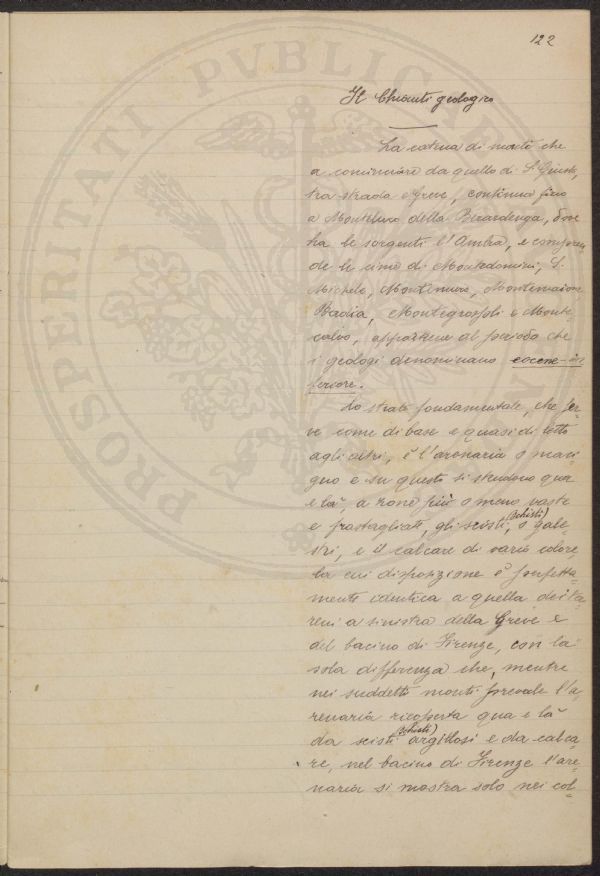 122
Il Chianti geologico
La catena di monti che
a cominciare da quello di S. Giusto,
tra strada e Greve, continua fino
a Monteluco della Berardenga, dove
ha le sorgenti l'Ambra, e compren
de le cime di Montedomini, S.
Michele, Montemuro, Montemaione
Badia, Montegrossoli e Monte
calvo, appartiene al periodo che
i geologi denominano eocene-in
feriore.
Lo strato fondamentale, che ser
ve come di base e quasi di letto
agli altri, è l'arenaria o maci
gno e su questo si stendono qua
e là, a zone più o meno vaste
e frastagliate, gli scisti, (schisti) o gale-
stri, e il calcare di vario colore,
la cui disposizione è perfetta
mente identica a quella dei ter
reni a sinistra della Greve e
del bacino di Firenze, con la
sola differenza che, mentre
nei suddetti monti prevale l'a
renaria ricoperta qua e là
da scisti (schisti) argillosi e da calca
re, nel bacino di Firenze l'are
naria si mostra solo nei col-
PROSPERITATI PVBLICAE